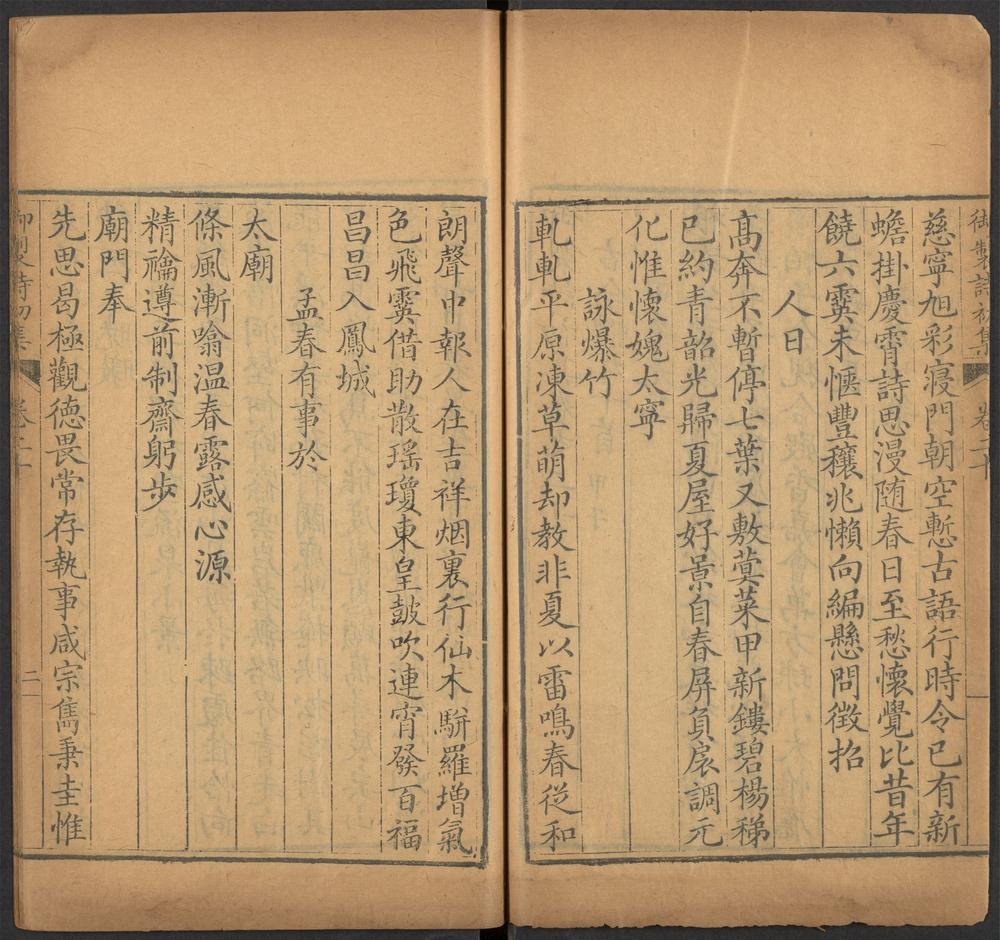 御製詩初集 卷二十
慈寧旭彩寢門朝空慙古語行時令已有新
蟾掛慶霄詩思漫隨春日至愁懷覺比昔年
饒六霙未愜豐穰兆懶向編懸問徵招
人日
高奔不暫停七葉又敷蓂菜甲新鏤碧楊稊
已約青韶光歸夏屋好景自春屏負扆調元
化惟懷媿太寧
詠爆竹
軋軋平原凍草萌却教非夏以雷鳴春從和
朗聲中報人在吉祥烟裏行仙木駢羅增氣
色飛霙借助散瑶瓊東皇鼓吹連宵發百福
昌昌入鳳城
孟春有事於
太廟
條風漸噏温春露感心源
精禴遵前制齋躬步
廟門奉
先思曷極觀德畏常存執事咸宗雋秉圭惟
御製詩初集 卷二十 二